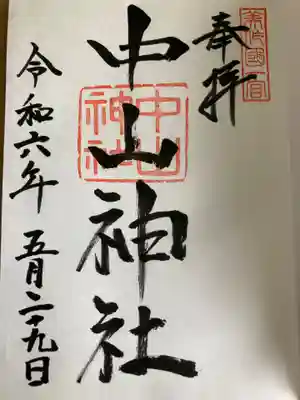 奉拝
美作國一宮
中山神社
中山神社
令和六年 五月二十九日